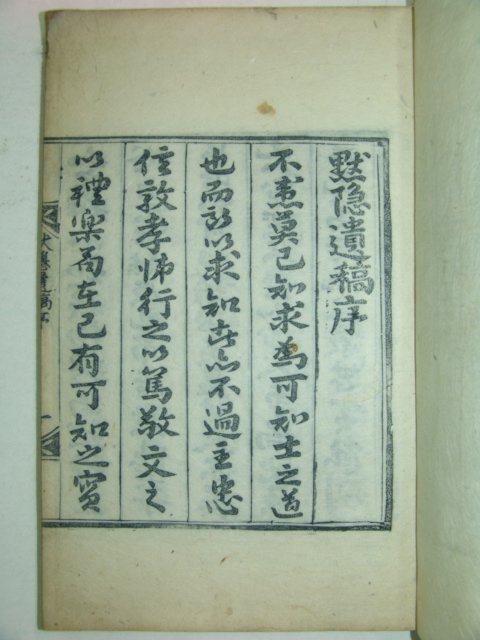 默隐遺稿序
不患莫己知求爲可知士之道
也而所以求知者亦不過主忠
信敦孝悌行之以篤敬文之
以禮樂而在己有可知之實